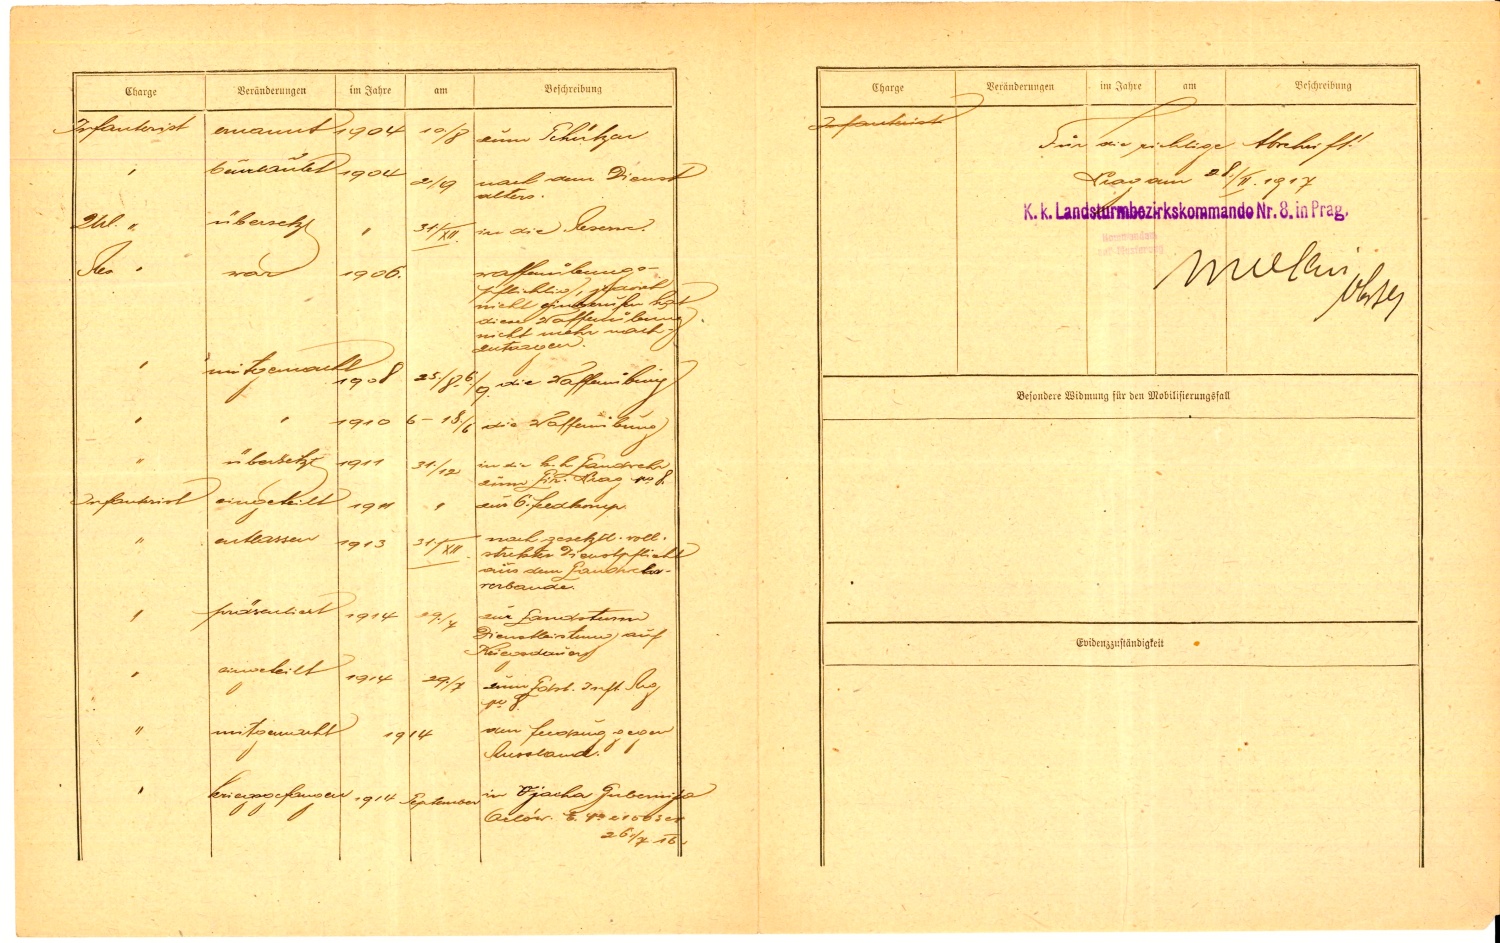 Charge Veränderungen im Jahre am Beschreibung
Infanterist ernannt 1904 10/8 zum Schützen
" beurlaubt 1904 2/9 nach dem Dienst
alters.
" übersetzt " 31/XII. in die Reserve.
Res " war 1906. waffenübungs-
pflichtig,
nicht
dieser Waffenübung
nicht mehr nach-
zutragen.
" mitgemacht 1908 25./8. 6./9. die Waffenübung
" " 1910 6 – 18/6 die Waffenübung
" übersetzt 1911 31./12 in die k. k. Landwehr
zum Prag No 8.
Infanterist eingeteilt 1911 " zur 6. Feldkomp.
" entlassen 1913 31./XII. nach gesetzl. voll-
streckter Dienstpflicht
aus dem Landwehr-
verbande.
" präsentiert 1914 29./7 zur Landsturm
Dienstleistung auf
Kriegsdauer
" eingeteilt 1914 29./7 zum Ldst. Inft Reg
No 8.
" mitgemacht 1914 den Feldzug gegen
Russland.
" kriegsgefangen 1914 September in Gubernija
26/7 16.
Charge Veränderungen im Jahre am Beschreibung
Infanterist
Für die richtige Abschrift!
Prag am 28./II. 1917
K. k. Landsturmbezirkskommando Nr. 8. in Prag.
Oberst
Besondere Widmung für den Mobilisierungsfall
Evidenzzuständigkeit